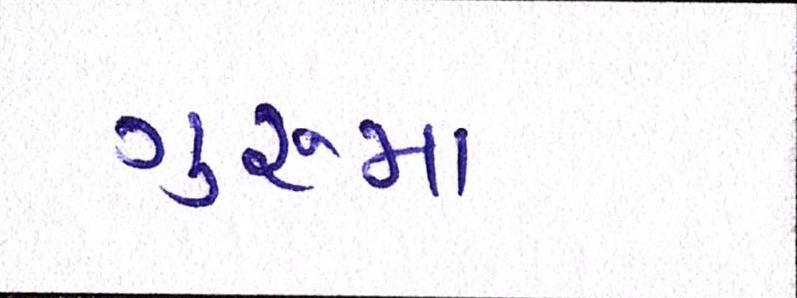 ગુરુમા